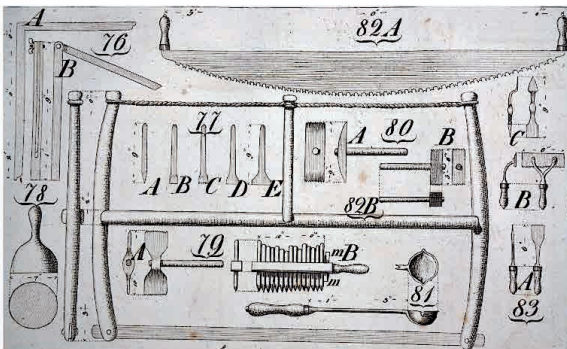 A
76
B
82A
77
A
B
C
D
E
A
80
B
C
82B
B
78
A
79
B
m
m
81
A
83